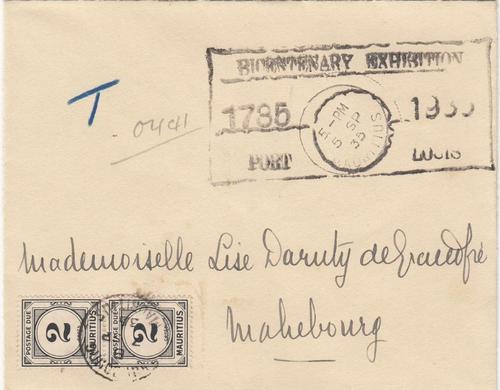 BICENTENARY EXHIBITION
1735 1935
5 - PM
5 SP
35
MAURITIUS
PORT LOUIS
T
0441
Mademoiselle Lise Daruty de Grandpré
Mahebourg
POSTAGE DUE 2 MAURITIUS
POSTAGE DUE 2 MAURITIUS